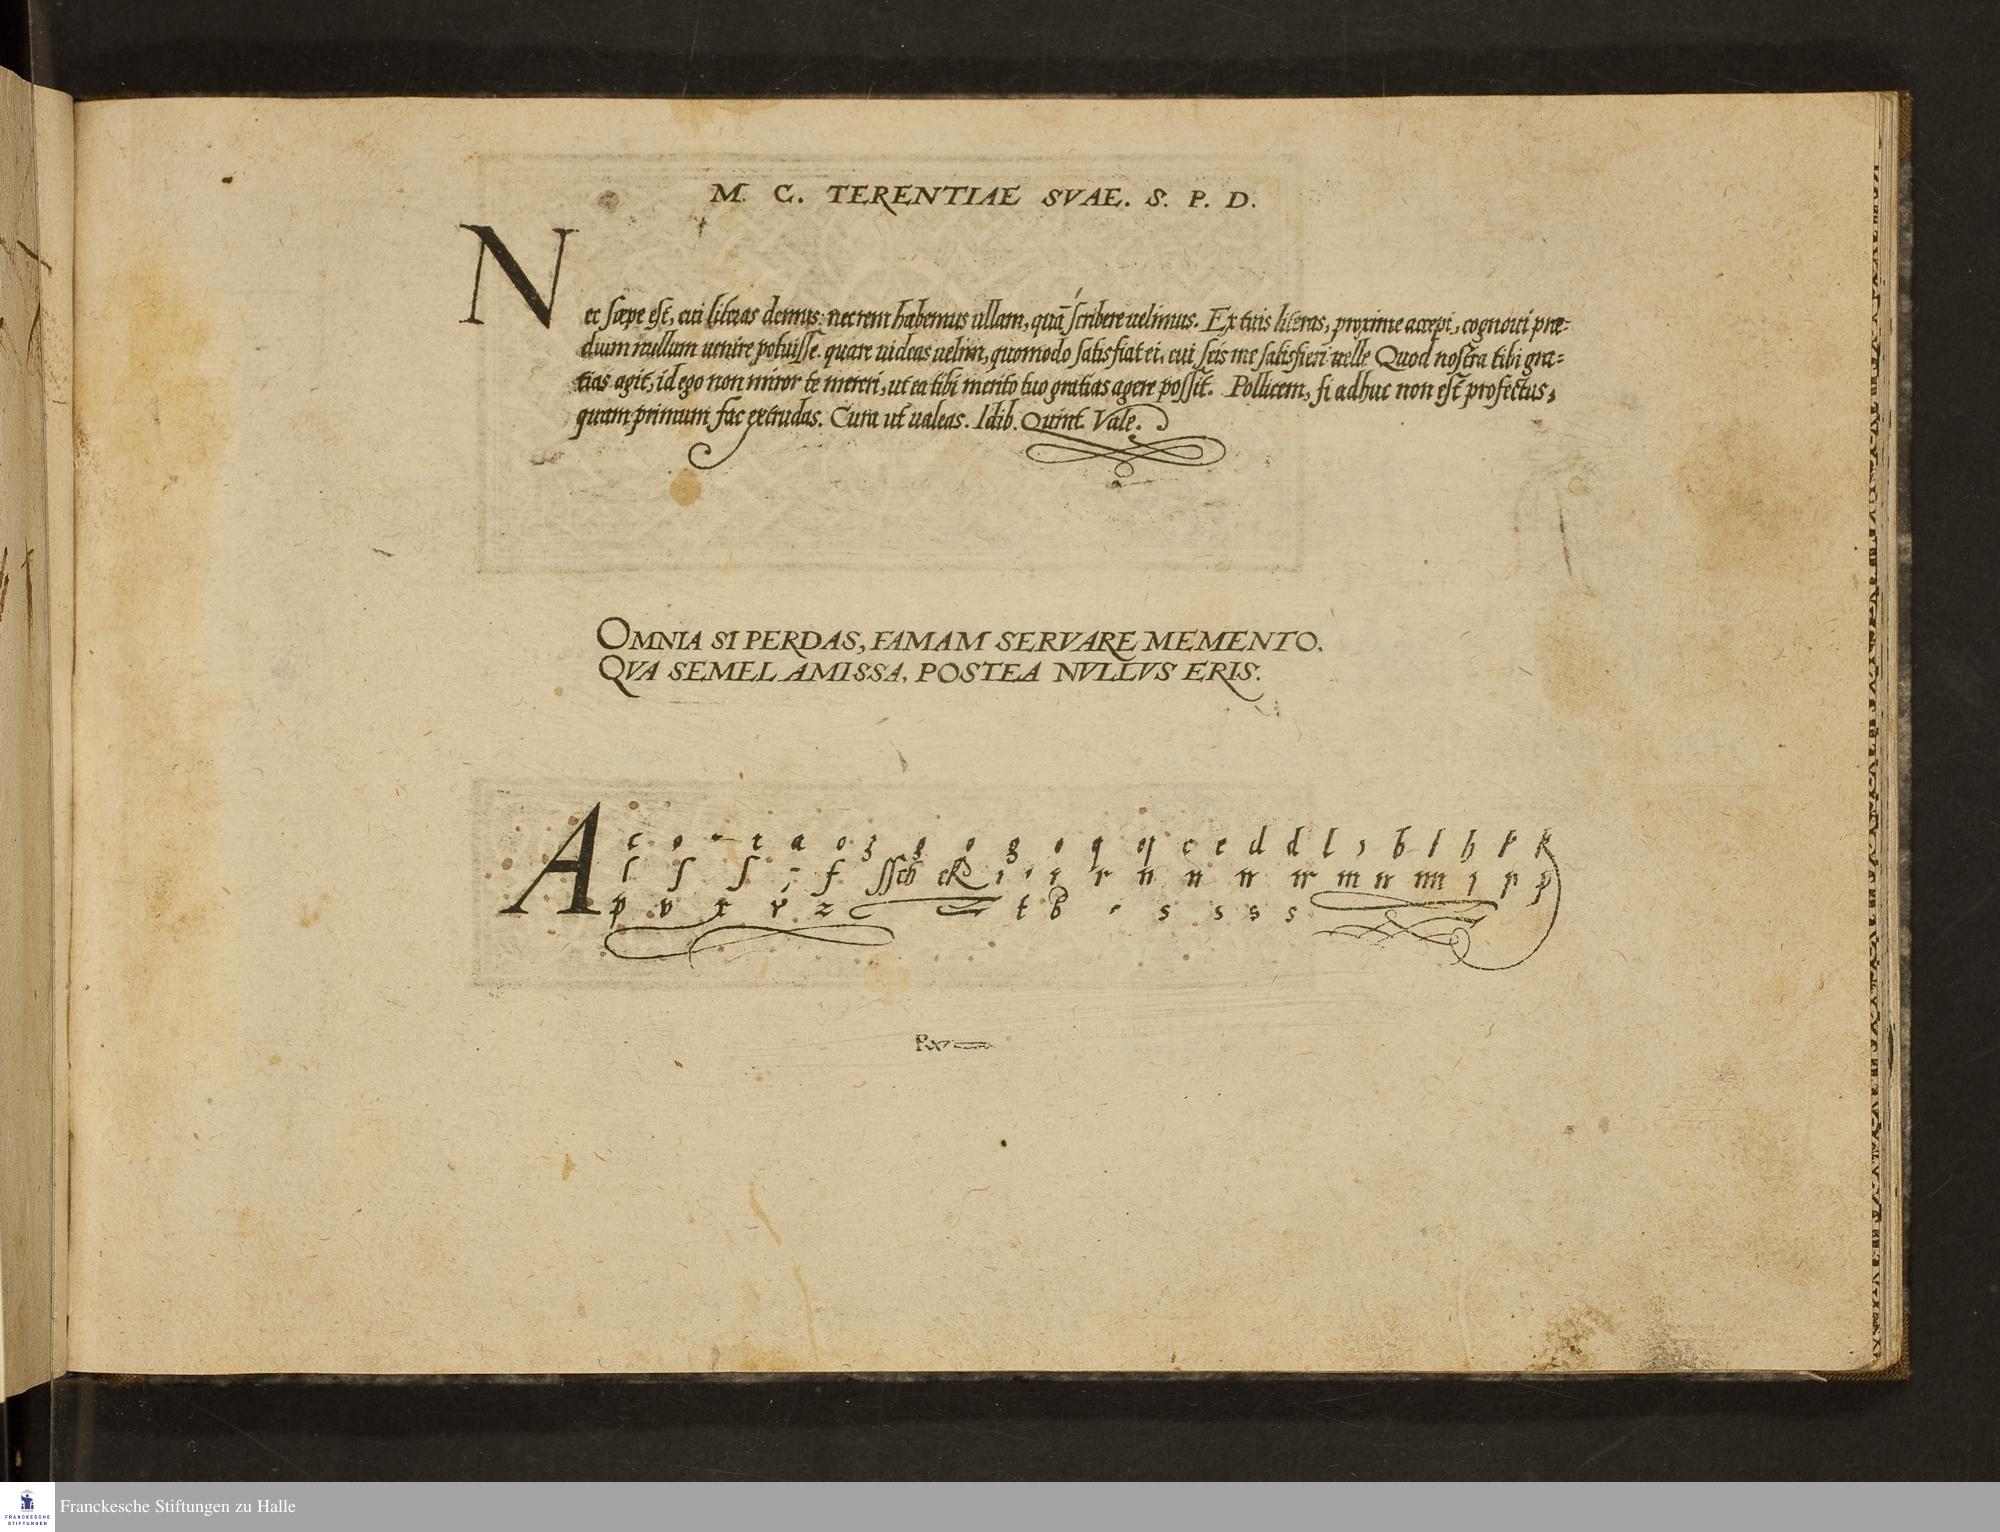 M. C. TERENTIAE SVAE. S. P. D.
Nec sæpe est, cui literas demus: nec rem habemus ullam, quā scribere uelimus. Ex tuis literas, proxime accepi, cognoui præ-
dium nullum uenire potuisse. quare uideas uelim, quomodo satisfiat ei, cui scis me satisfieri uelle Quod nostra tibi gra-
tias agit, id ego non miror te mereri, ut ea tibi merito tuo gratias agere possit. Pollicem, si adhuc non est profectus,
quam primum fac extrudas. Cura ut ualeas. Idib. Quint. Vale.
OMNIA SI PERDAS, FAMAM SERVARE MEMENTO.
QVA SEMEL AMISSA, POSTEA NVLLVS ERIS.
A
Franckesche Stiftungen zu Halle
FRANCKESCHE
STIFTUNGEN